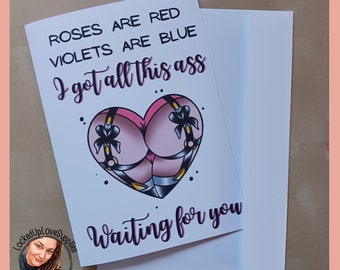 ROSES ARE RED
VIOLETS ARE BLUE
I got all this ass
Waiting for you
LockedUpLoveSupplies